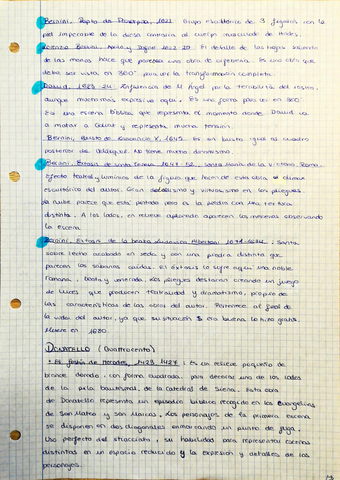 Bernini, Rapto de Proserpina, 1622. Grupo escultórico de 3 figuras con la
piel impecable de la diosa contraria al cuerpo musculado de Hades.
Lorenzo Bernini, Apolo y Dafne 1622-25. El detalle de las hojas saliendo
de las manos hace que parezca una obra de orfebrería. Es una obra que
debe ser vista en 360° para ver la transformación completa.
David, 1623-24. Influencia de M. Ángel por la terribilità del rostro,
aunque mucho más expresivo aquí. Es una forma para ver en 360°
Es una escena bíblica que representa el momento donde David va
a matar a Goliat y representa mucha tensión.
Bernini, Busto de Inocencio X, 1645. Es un busto igual al cuadro
posterior de Velázquez. No tiene mucho dinamismo.
Bernini, Éxtasis de Santa Teresa 1647-52, Santa María de la Victoria, Roma.
Efecto teatral y luminoso de la figura que hacen de esta obra el clímax
escultórico del autor. Gran detallismo y virtuosismo en los pliegues.
La nube parece que está pintada pero es la piedra con una textura
distinta. A los lados, en relieve aplanado aparecen los mecenas observando
la escena.
Bernini, Éxtasis de la beata Ludovica Albertoni 1671-1674. Santa
sobre lecho acabado en seda y con una piedra distinta que
parecen las sábanas caídas. El éxtasis lo sufre aquí una noble
romana, beata y venerada. Los pliegues destacan creando un juego
de luces que producen teatralidad y dramatismo, propio de
las características de las obras del autor. Pertenece al final de
la vida del autor, ya que su situación era buena
Muere en 1680
DONATELLO (Quattrocento)
· El festín de Herodes, 1423-1427: Es un relieve pequeño de
bronce dorado, con forma cuadrada, para decorar uno de los lados
de la pila bautismal, de la Catedral de Siena. Esta obra
de Donatello representa un episodio bíblico recogido en los Evangelios
de San Mateo y San Marcos. Los personajes de la primera escena
se disponen en dos diagonales enmarcando un punto de fuga.
Uso perfecto del stiacciato, su habilidad para representar escenas
distintas en un espacio reducido y la expresión y detalles de los
personajes.